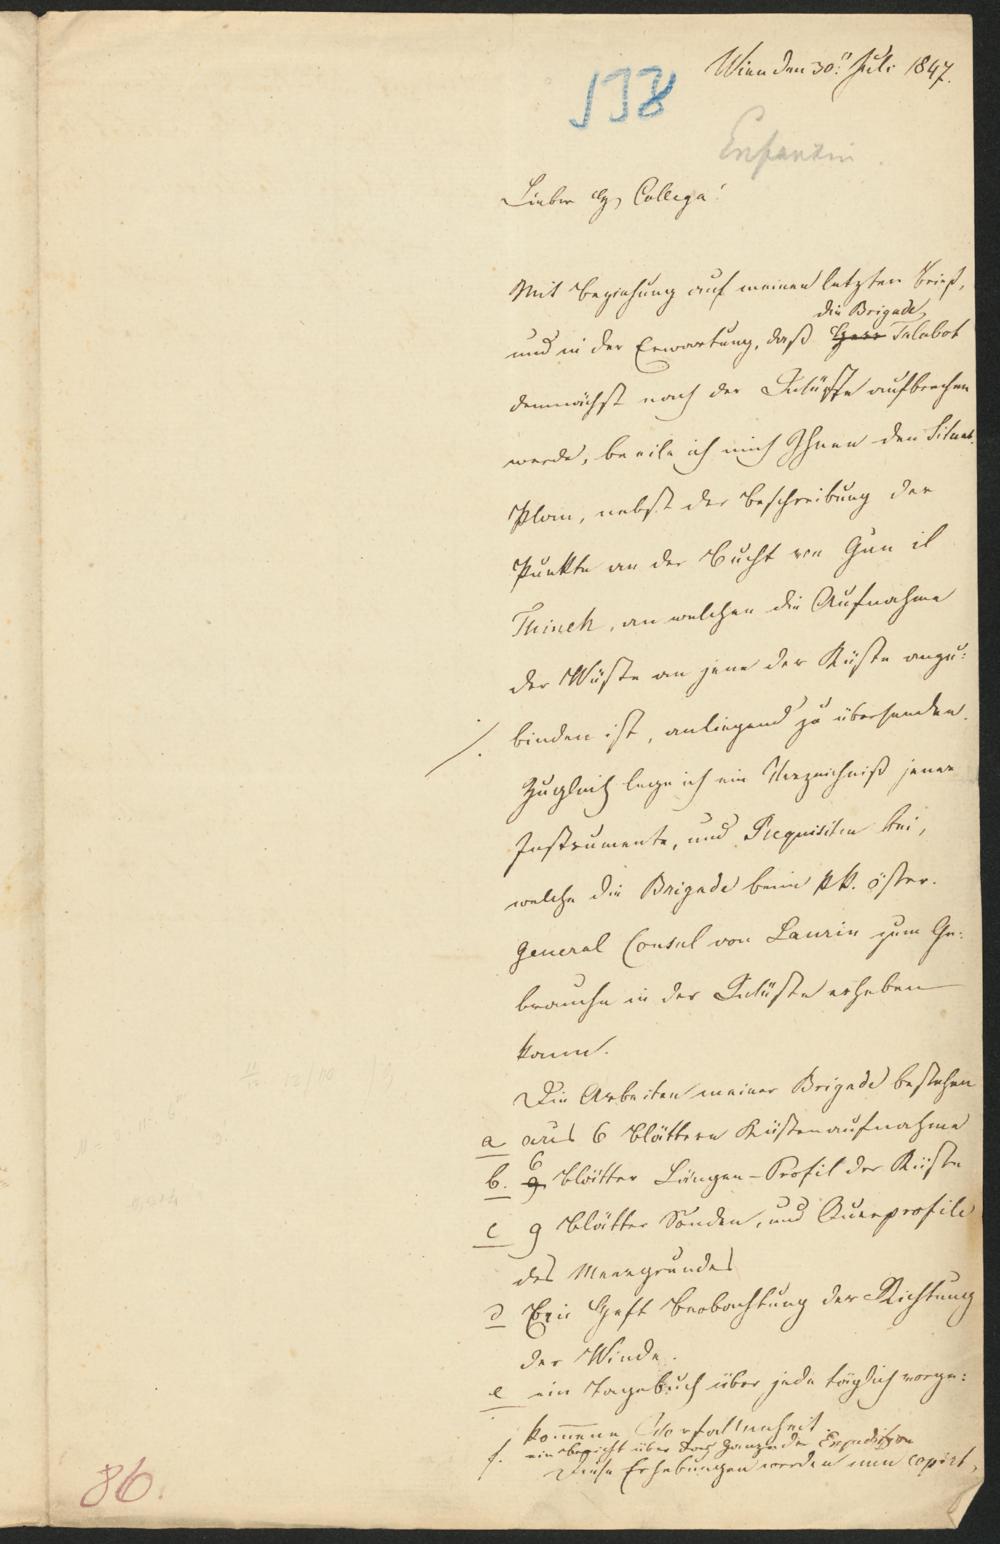 Wien den 30. Juli 1847.
138
Enfantin.
Lieber H. Collega!
Mit Beziehung auf meinen letzten Brief,
die Brigade
und in der Erwartung, daß Herr Talabot
demnächst nach der Küste aufbrechen
werde, beeile ich mich Ihnen den Situat.
Plan, nebst der Beschreibung der
Punkte an der Bucht von Gün il
Thineh, an welchen die Aufnahme
der Wüste an jene der Küste anzu:
binden ist, anliegend zu übersenden.
Zugleich lege ich ein Verzeichniß jener
Instrumente, und Requisiten bei,
welche die Brigade beim kk. öster.
General Consul von Laurin zum Ge:
brauche in der Wüste erheben
kann.
Die Arbeiten meiner Brigade bestehen
a aus 6 Blättern Küstenaufnahme
6
b. 9 Blätter Längen-Profil der Küste
c 9 Blätter Sonden, und Querprofile
des Meergrundes
d Ein Heft Beobachtung der Richtung
der Winde.
e ein Tagebuch über jede täglich vorge:
kommene Vorfallenheit.
f. ein Bericht über das Ganze der Expedition
Diese Erhebungen werden nun copirt,
86.